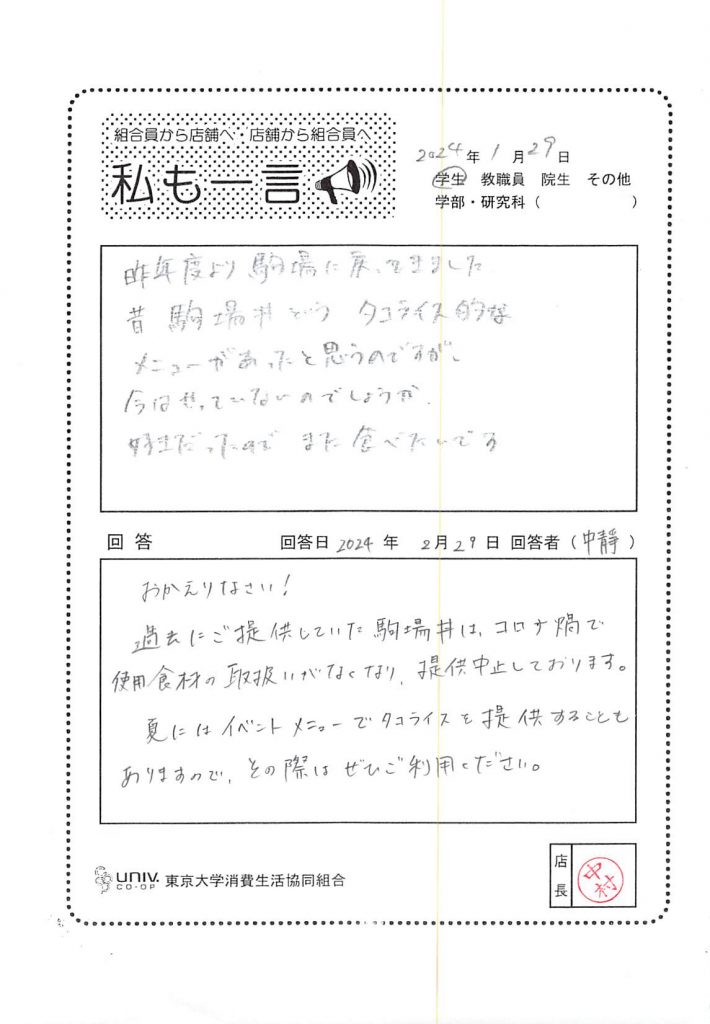 組合員から店舗へ・店舗から組合員へ
私も一言
2024年1月29日
学生 教職員 院生 その他
学部・研究科（ ）
昨年度より駒場に戻ってきました
昔 駒場丼という タコライス的な
メニューがあったと思うのですが、
今はやっていないのでしょうか。
好きだったので また食べたいです
回答 回答日 2024年 2月29日 回答者（中静）
おかえりなさい！
過去にご提供していた駒場丼は、コロナ禍で
使用食材の取扱いがなくなり、提供中止しております。
夏にはイベントメニューでタコライスを提供することも
ありますので、その際はぜひご利用ください。
UNIV. CO-OP 東京大学消費生活協同組合
店長 中村